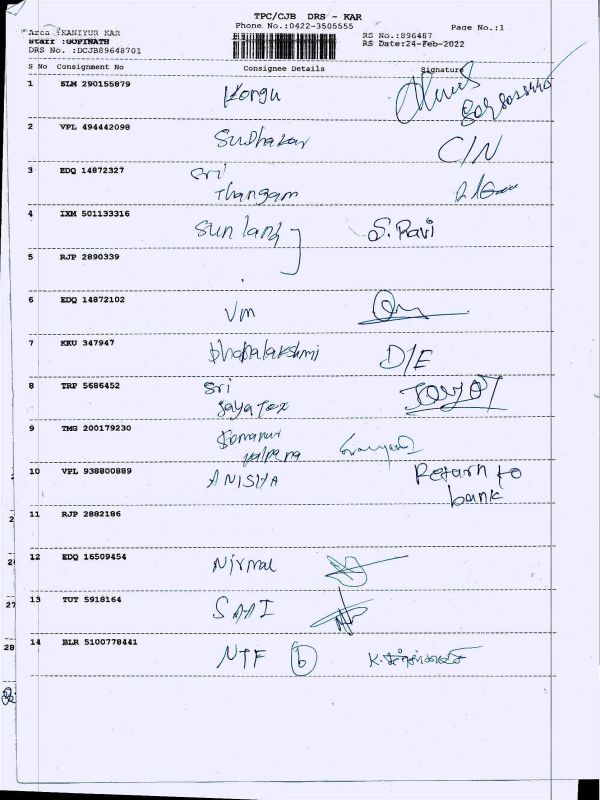 TPC/CJB DRS - KAR
Phone No.:0422-3505555
Page No.:1
Area :KANIYUR KAR
Staff :GOPINATH
DRS No. :DCJB89648701
RS No.:896487
RS Date:24-Feb-2022
S No Consignment No Consignee Details Signature
1 SLM 290155879 Kongu
2 VPL 494442098 Sudhakar C/N
3 EDQ 14872327 Sri
Thangam
4 IXM 501133316 Sun land S. Ravi
5 RJP 2890339
6 EDQ 14872102 Vm
7 KKU 347947 Dhanalakshmi D/E
8 TRP 5686452 Sri
Jaya Tex
9 TMG 200179230 Somanur
10 VPL 938800889 ANISHA Return to
bank
11 RJP 2882186
12 EDQ 16509454 Nirmal
13 TUT 5918164 SAAI
14 BLR 5100778441 NTF 6
27
28